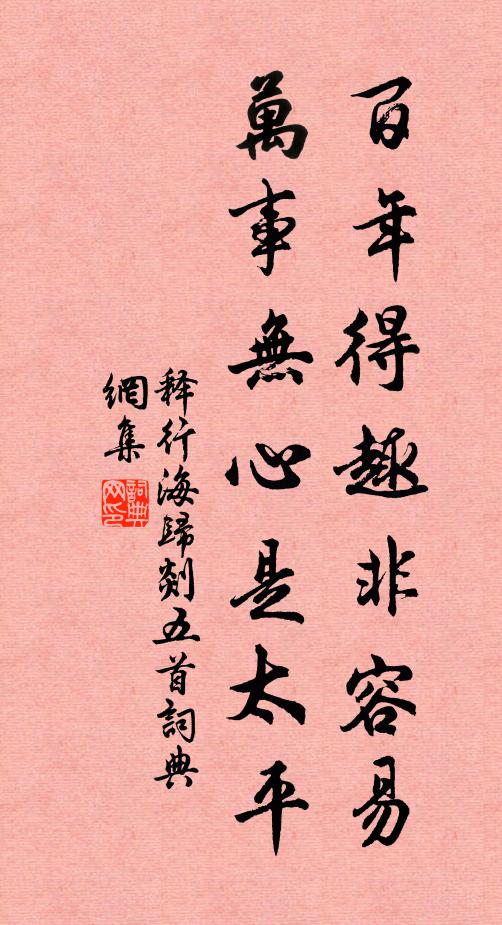 百年得趣非容易
萬事無心是太平
释行海歸剡五首詞典
網集
詞典
网印